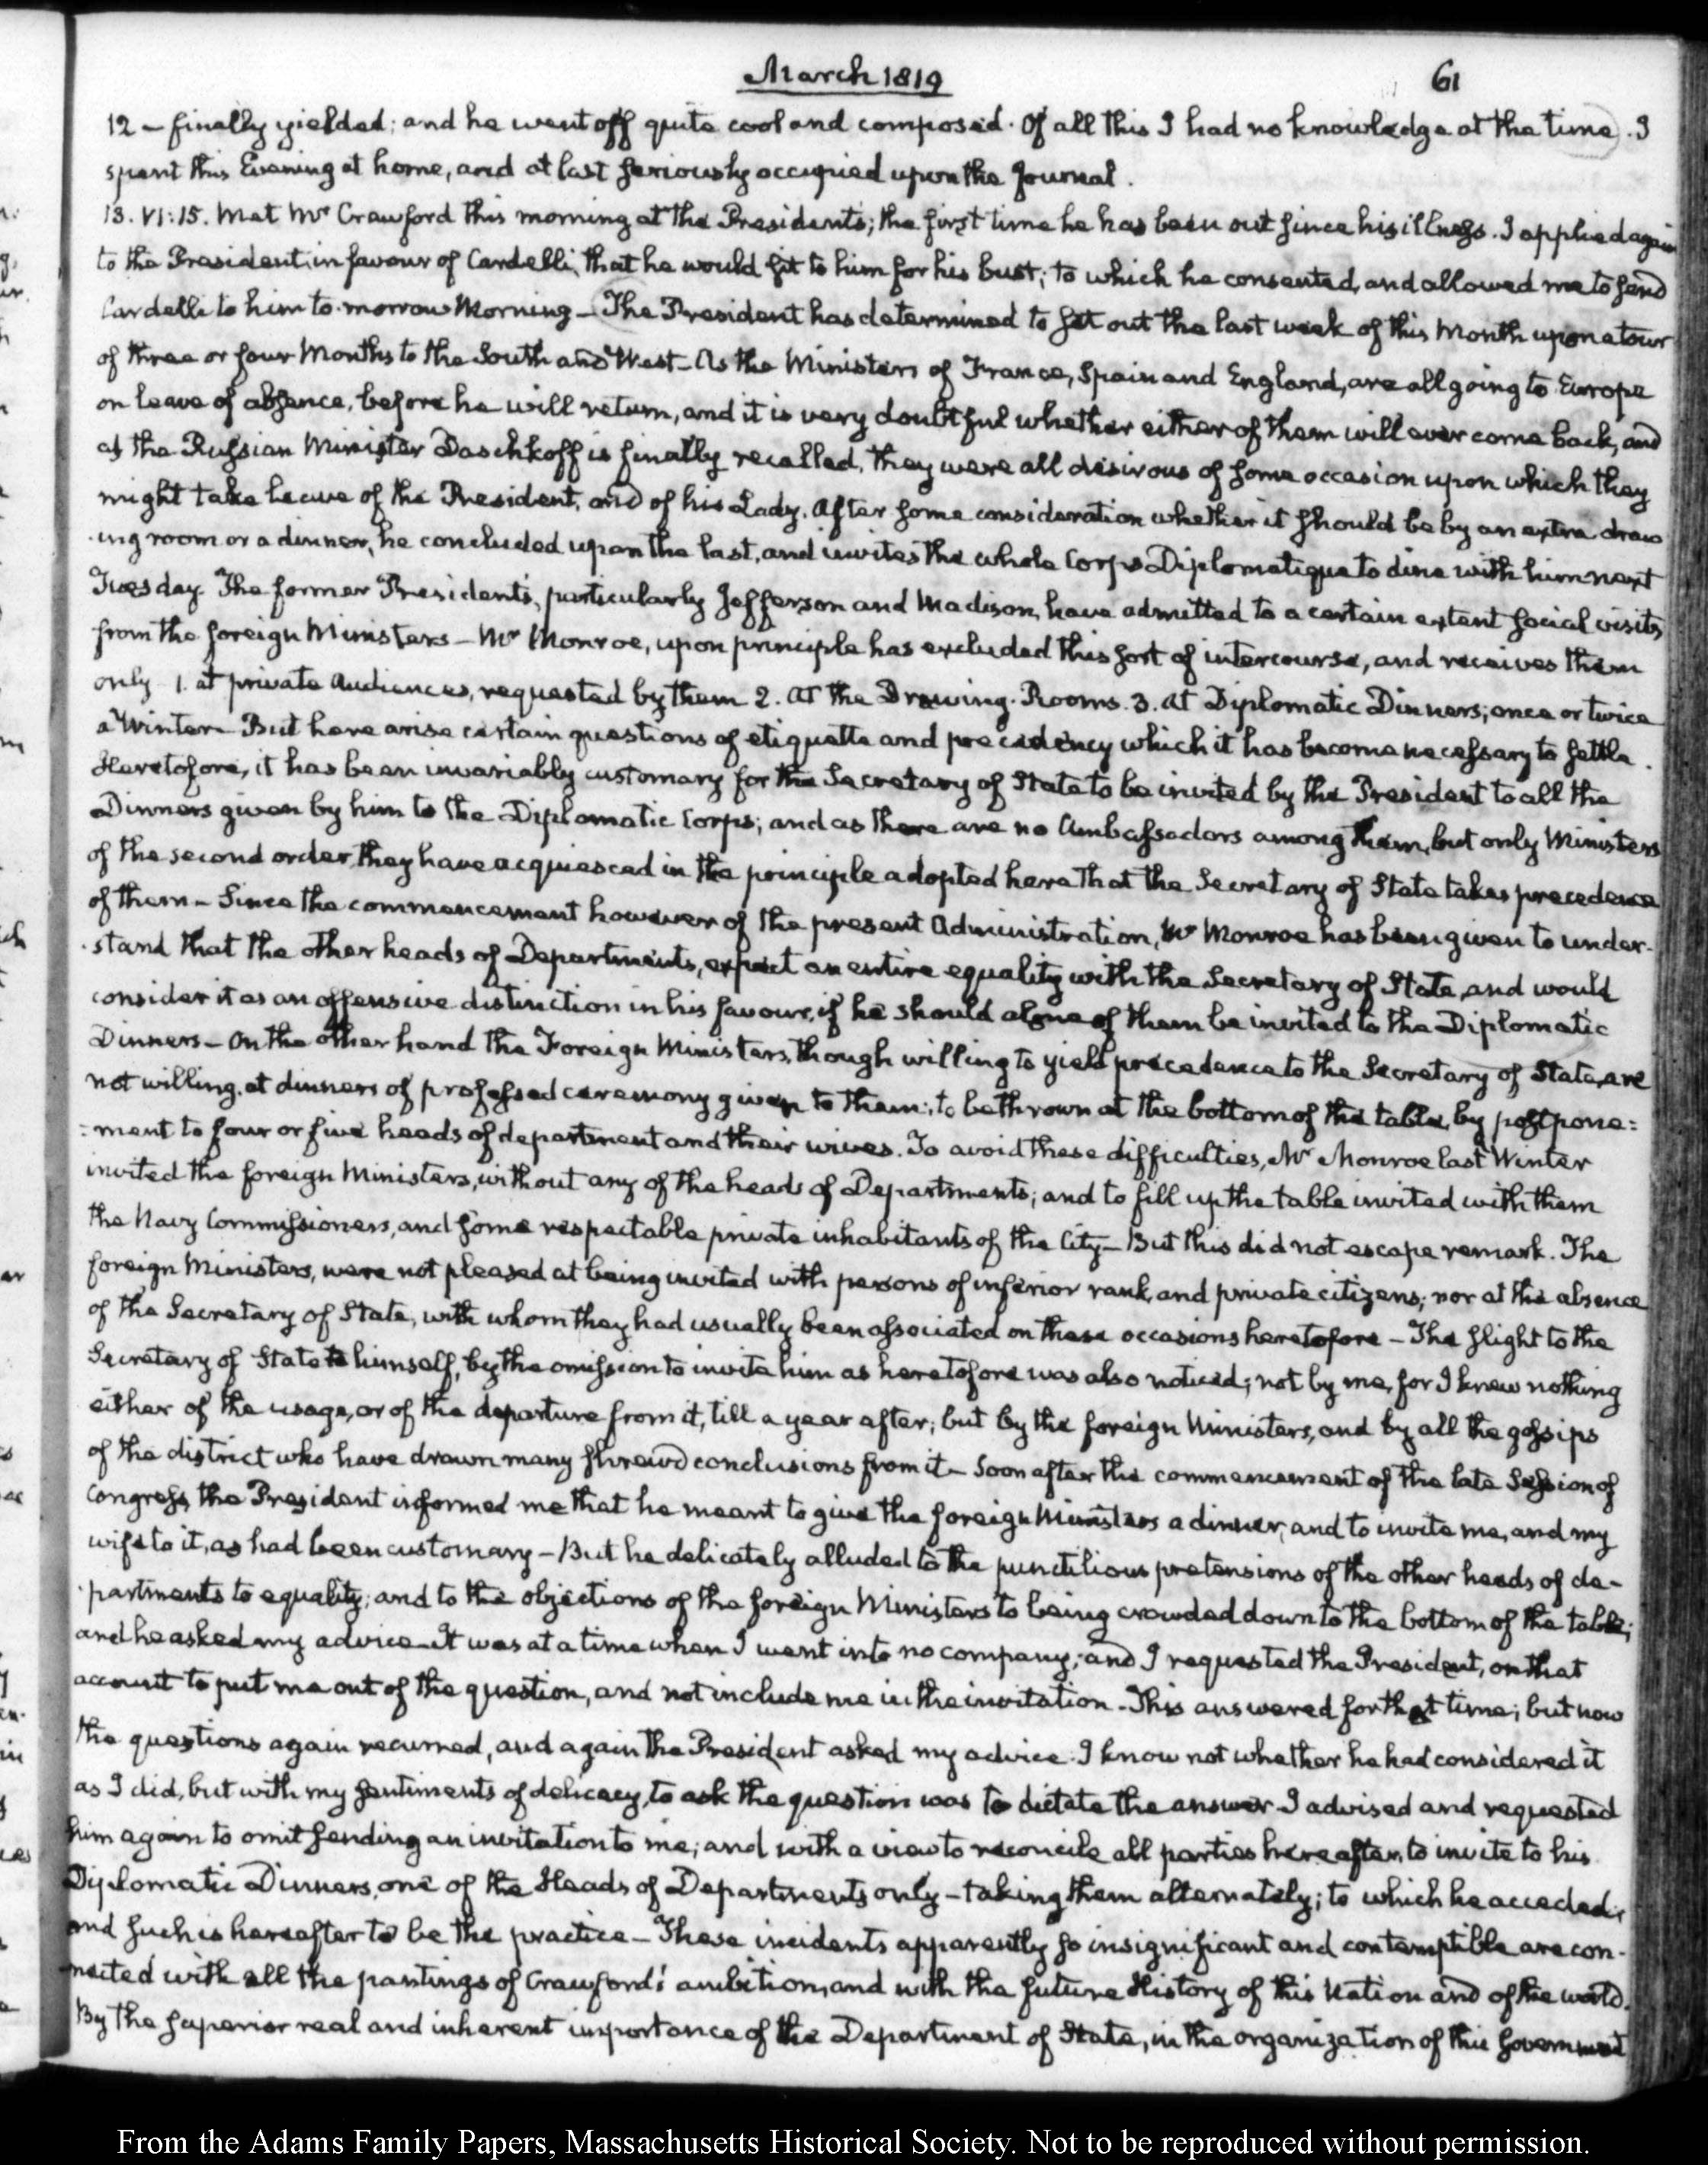 March 1819
61
12 — finally yielded; and he went off quite cool and composed. Of all this I had no knowledge at the time. I
spent this Evening at home, and at last seriously occupied upon the Journal.
13. VI:15. Met Mr Crawford this morning at the Presidents; the first time he has been out since his illness. I applied again
to the President in favour of Cardelli, that he would sit to him for his bust; to which he consented, and allowed me to send
Cardelli to him to-morrow Morning — The President has determined to set out the last week of this Month upon a tour
of three or four Months to the South and West — As the Ministers of France, Spain and England, are all going to Europe
on leave of absence, before he will return, and it is very doubtful whether either of them will ever come back, and
as the Russian Minister Daschkoff is finally recalled, they were all desirous of some occasion upon which they
might take leave of the President, and of his Lady. After some consideration whether it should be by an extra draw
-ing room or a dinner, he concluded upon the last, and invites the whole Corps Diplomatique to dine with him next
Tuesday. The former Presidents, particularly Jefferson and Madison, have admitted to a certain extent social visits
from the foreign Ministers — Mr Monroe, upon principle has excluded this sort of intercourse, and receives them
only 1. at private Audiences, requested by them 2. At the Drawing-Rooms. 3. At Diplomatic Dinners; once or twice
a Winter — But here arise certain questions of etiquette and precedency which it has become necessary to settle.
Heretofore, it has been invariably customary for the Secretary of State to be invited by the President to all the
Dinners given by him to the Diplomatic Corps; and as there are no Ambassadors among them, but only Ministers
of the second order, they have acquiesced in the principle adopted here that the Secretary of State takes precedence
of them — Since the commencement however of the present Administration, Mr Monroe has been given to under-
-stand that the other heads of Departments, expect an entire equality with the Secretary of State, and would
consider it as an offensive distinction in his favour, if he should alone of them be invited to the Diplomatic
Dinners — On the other hand the Foreign Ministers, though willing to yield precedence to the Secretary of State, are
not willing, at dinners of professed ceremony given to them, to be thrown at the bottom of the table, by postpone=
=ment to four or five heads of department and their wives. To avoid these difficulties, Mr Monroe last Winter
invited the foreign Ministers, without any of the heads of Departments; and to fill up the table invited with them
the Navy Commissioners, and some respectable private inhabitants of the City — But this did not escape remark. The
foreign Ministers, were not pleased at being invited with persons of inferior rank, and private citizens; nor at the absence
of the Secretary of State, with whom they had usually been associated on these occasions heretofore — The slight to the
Secretary of State himself, by the omission to invite him as heretofore was also noticed; not by me, for I knew nothing
either of the usage, or of the departure from it, till a year after; but by the foreign Ministers, and by all the gossips
of the district who have drawn many shrewd conclusions from it — Soon after the commencement of the late Session of
Congress, the President informed me that he meant to give the foreign Ministers a dinner, and to invite me, and my
wife to it, as had been customary — But he delicately alluded to the punctilious pretensions of the other heads of de-
-partments to equality; and to the objections of the foreign Ministers to being crowded down to the bottom of the table;
and he asked my advice — It was at a time when I went into no company; and I requested the President, on that
account to put me out of the question, and not include me in the invitation — This answered for that time; but now
the questions again recurred, and again the President asked my advice. I know not whether he had considered it
as I did, but with my sentiments of delicacy, to ask the question was to dictate the answer. I advised and requested
him again to omit sending an invitation to me; and with a view to reconcile all parties hereafter, to invite to his
Diplomatic Dinners, one of the Heads of Departments only — taking them alternately; to which he acceded;
and such is hereafter to be the practice — These incidents apparently so insignificant and contemptible are con-
-nected with all the pantings of Crawford's ambition, and with the future History of this Nation and of the world.
By the superior real and inherent importance of the Department of State, in the organization of this Government
From the Adams Family Papers, Massachusetts Historical Society. Not to be reproduced without permission.